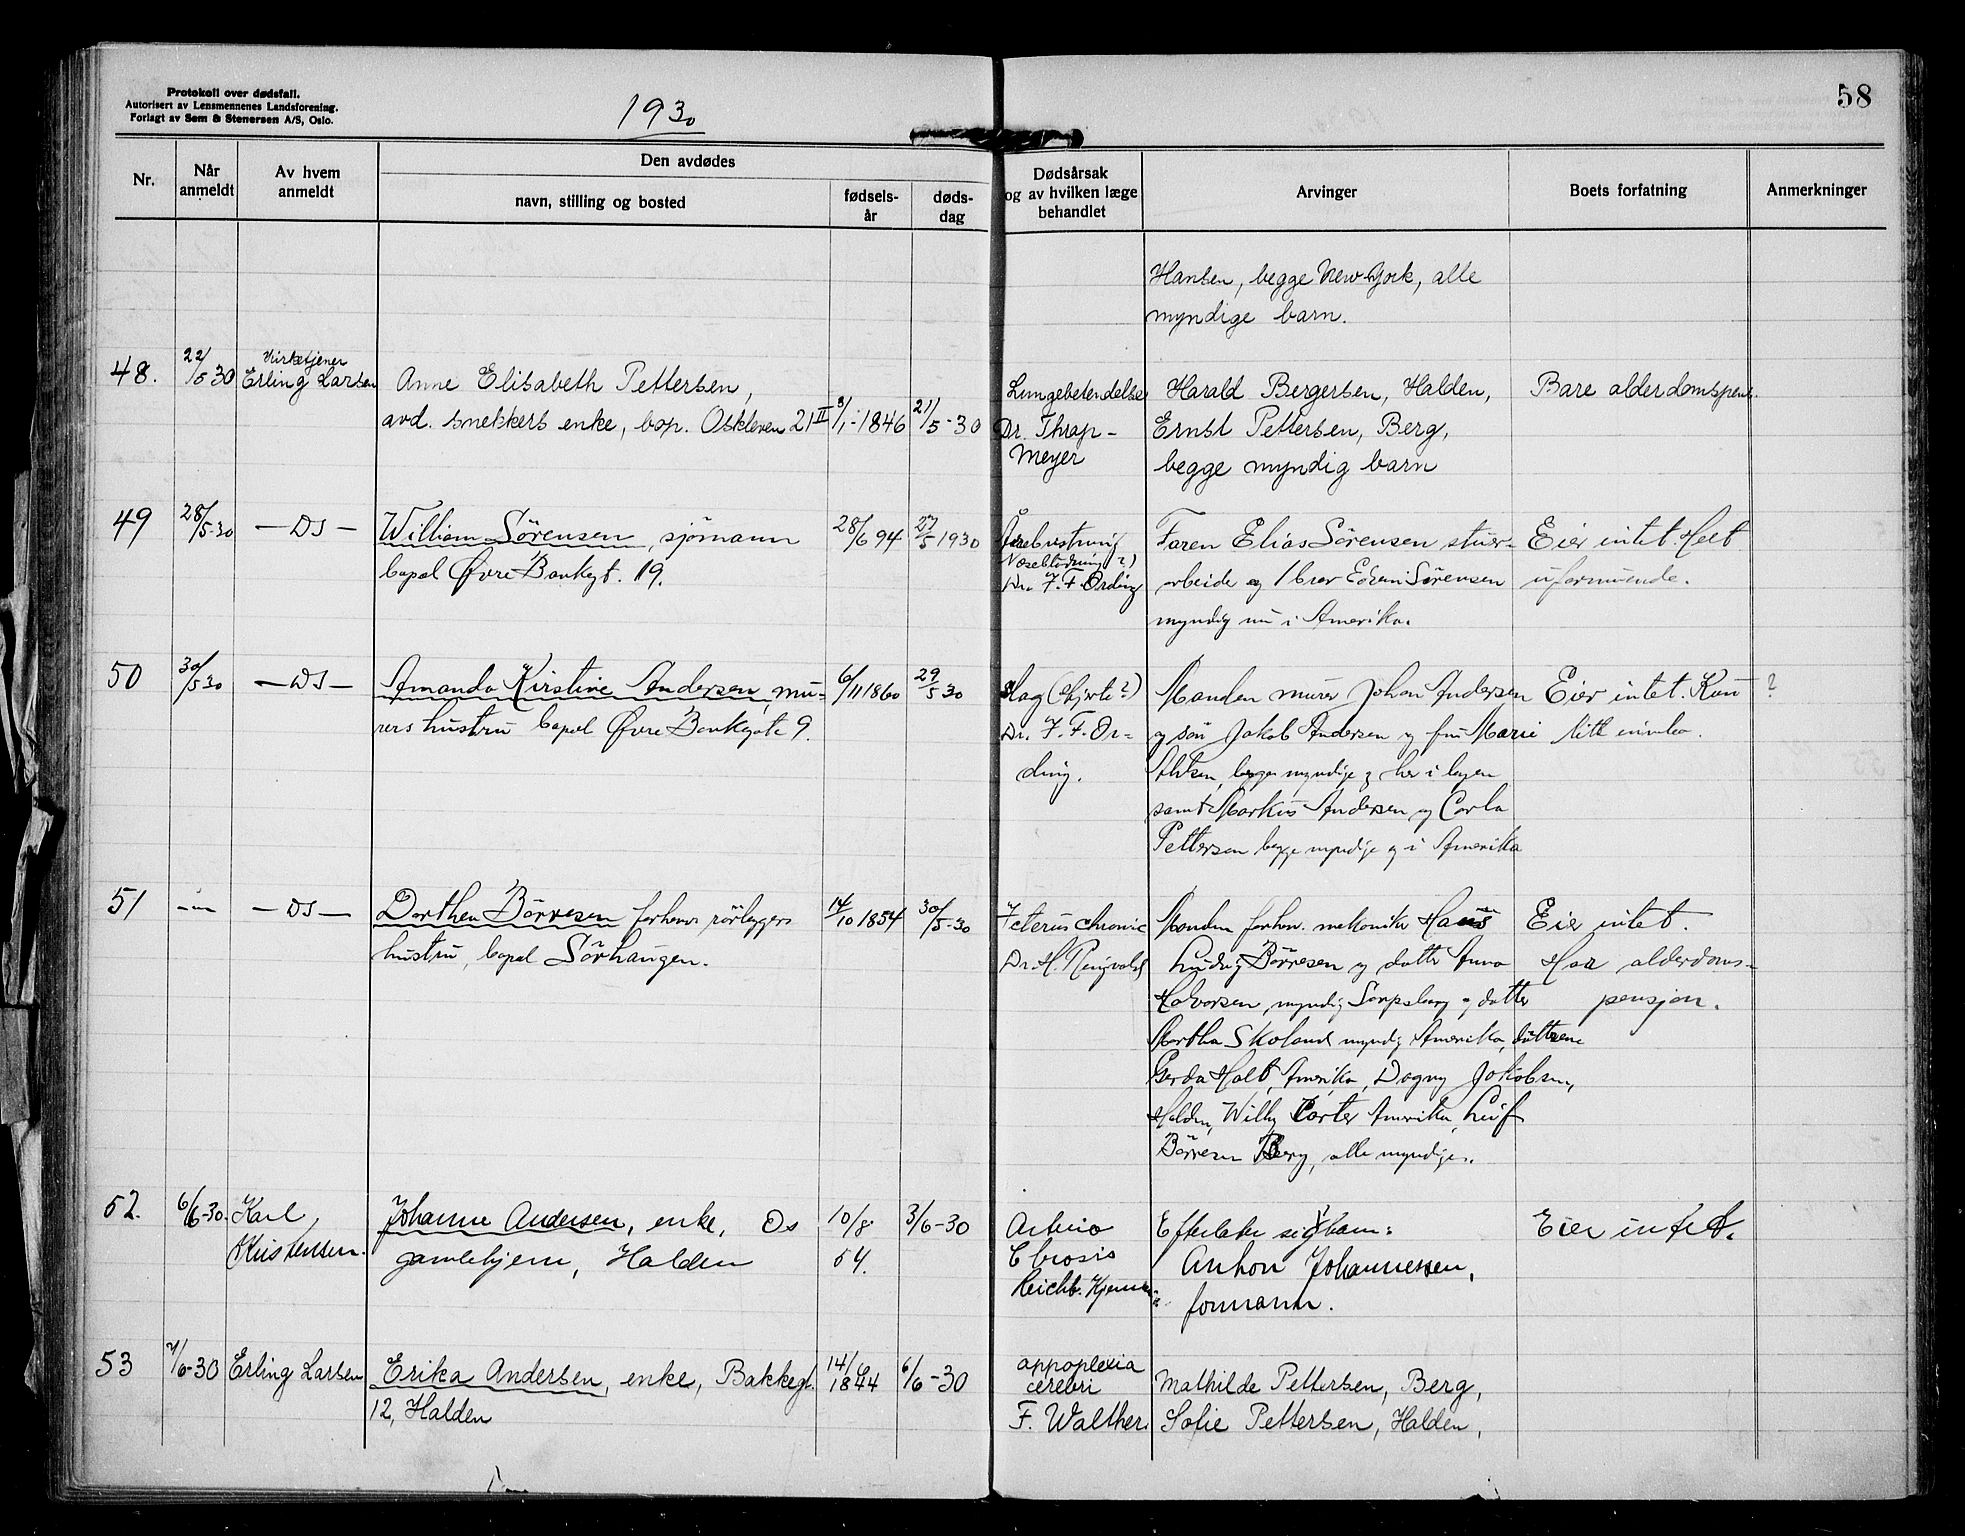 Protokoll over dødsfall.
Autorisert av Lensmennenes Landsforening.
Forlagt av Sem & Stenersen A/S, Oslo.
1930
58
Nr.
Når anmeldt
Av hvem anmeldt
Den avdødes
navn, stilling og bosted
fødsels-år
døds-dag
Dødsårsak og av hvilken læge behandlet
Arvinger
Boets forfatning
Anmerkninger
Hansen, begge New York, alle
myndige barn.
48. 22/5 30 Kirketjener Erling Larsen
Anne Elisabeth Pettersen,
avd. snekkers enke, bop. Oskleven 21 II 3/1-1846 21/5-30
Lungebetendelse
Dr. Thrap-
Meyer
Harald Bergersen, Halden,
Ernst Pettersen, Berg,
begge myndig barn
Bare alderdomspens.
49 28/5-30 — Ds —
William Sörensen, sjömann
bopel Øvre Bankgt. 19.
28/6 94 27/5 1930
Årebristning
Neseblödning ?)
Dr. F. F. Ording
Faren Elias Sörensen stuer-
arbeide og 1 bror Edvin Sörensen
myndig nu i Amerika.
Eier intet. Helt
uformuende.
50 30/5 30 — Ds —
Amanda Kirstine Andersen, mu-
rers hustru bopel Øvre Bankgate 9.
6/11 1860 29/5 30
Slag (hjerte?)
Dr. F. F. Or-
ding.
Manden murer Johan Andersen
og sön Jakob Andersen og fru Marie
begge myndige og her i byen
samt Markus Andersen og Carla
Pettersen begge myndige og i Amerika
Eier intet. Kun
litt innbo.
?
51 — " — — Ds —
Dorthea Börresen forhenv. rörleggers
hustru, bopel Sörhaugen.
14/10 1854 30/5-30
Icterus chronic
Dr. H. Ringvold
Manden forhen. mekaniker Hans
Ludvig Börresen og datter Anna
Halvorsen, myndig Sarpsborg og datter
Martha Skoland myndig Amerika, döttrene
Gerda Holt, Amerika, Dagny Jakobsen,
Halden, Willy Carter Amerika, Leif
Börresen Berg, alle myndige.
Eier intet.
Har alderdoms-
pensjon.
52. 6/6-30. Karl
Kristensen.
Johanne Andersen, enke, Os
gamlehjem, Halden
10/8 54. 3/6-30
Arterio
Reichb. Hjemm
Efterlater sig barn:
Anton Johannessen,
formann.
Eier intet.
53 7/6-30 Erling Larsen
Erika Andersen, enke, Bakkegt.
12, Halden
14/6 1844 6/6-30
appoplexia
cerebri
F. Walther.
Mathilde Pettersen, Berg,
Sofie Pettersen, Halden,